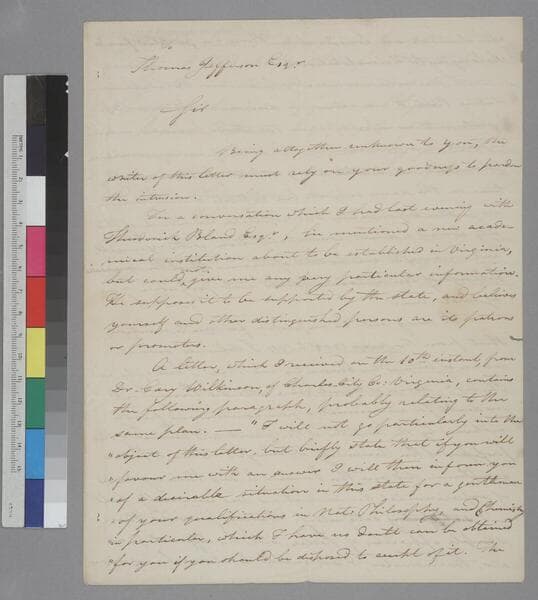 Thomas Jefferson Esqr
Sir
Being altogether unknown to you, the
writer of this letter must rely on your goodness to pardon
the intrusion.
In a conversation which I had last evening with
Theodorick Bland Esqr, he mentioned a new acade-
mical institution about to be established in Virginia,
but could not give me any very particular information.
He supposes it to be supported by the state, and believes
yourself and other distinguished persons are its patrons
or promoters.
A letter, which I received on the 10th instant, from
Dr. Cary Wilkinson, of Charles City Co: Virginia, contains
the following paragraph, probably relating to the
same plan. — "I will not go particularly into the
"object of this letter, but briefly state that if you will
"favour me with an answer I will then inform you
"of a desirable situation in this state for a gentleman
"of your qualifications in Natl Philosophy, and Chemistry
"in particular, which I have no doubt can be obtained
"for you if you should be disposed to accept of it. The